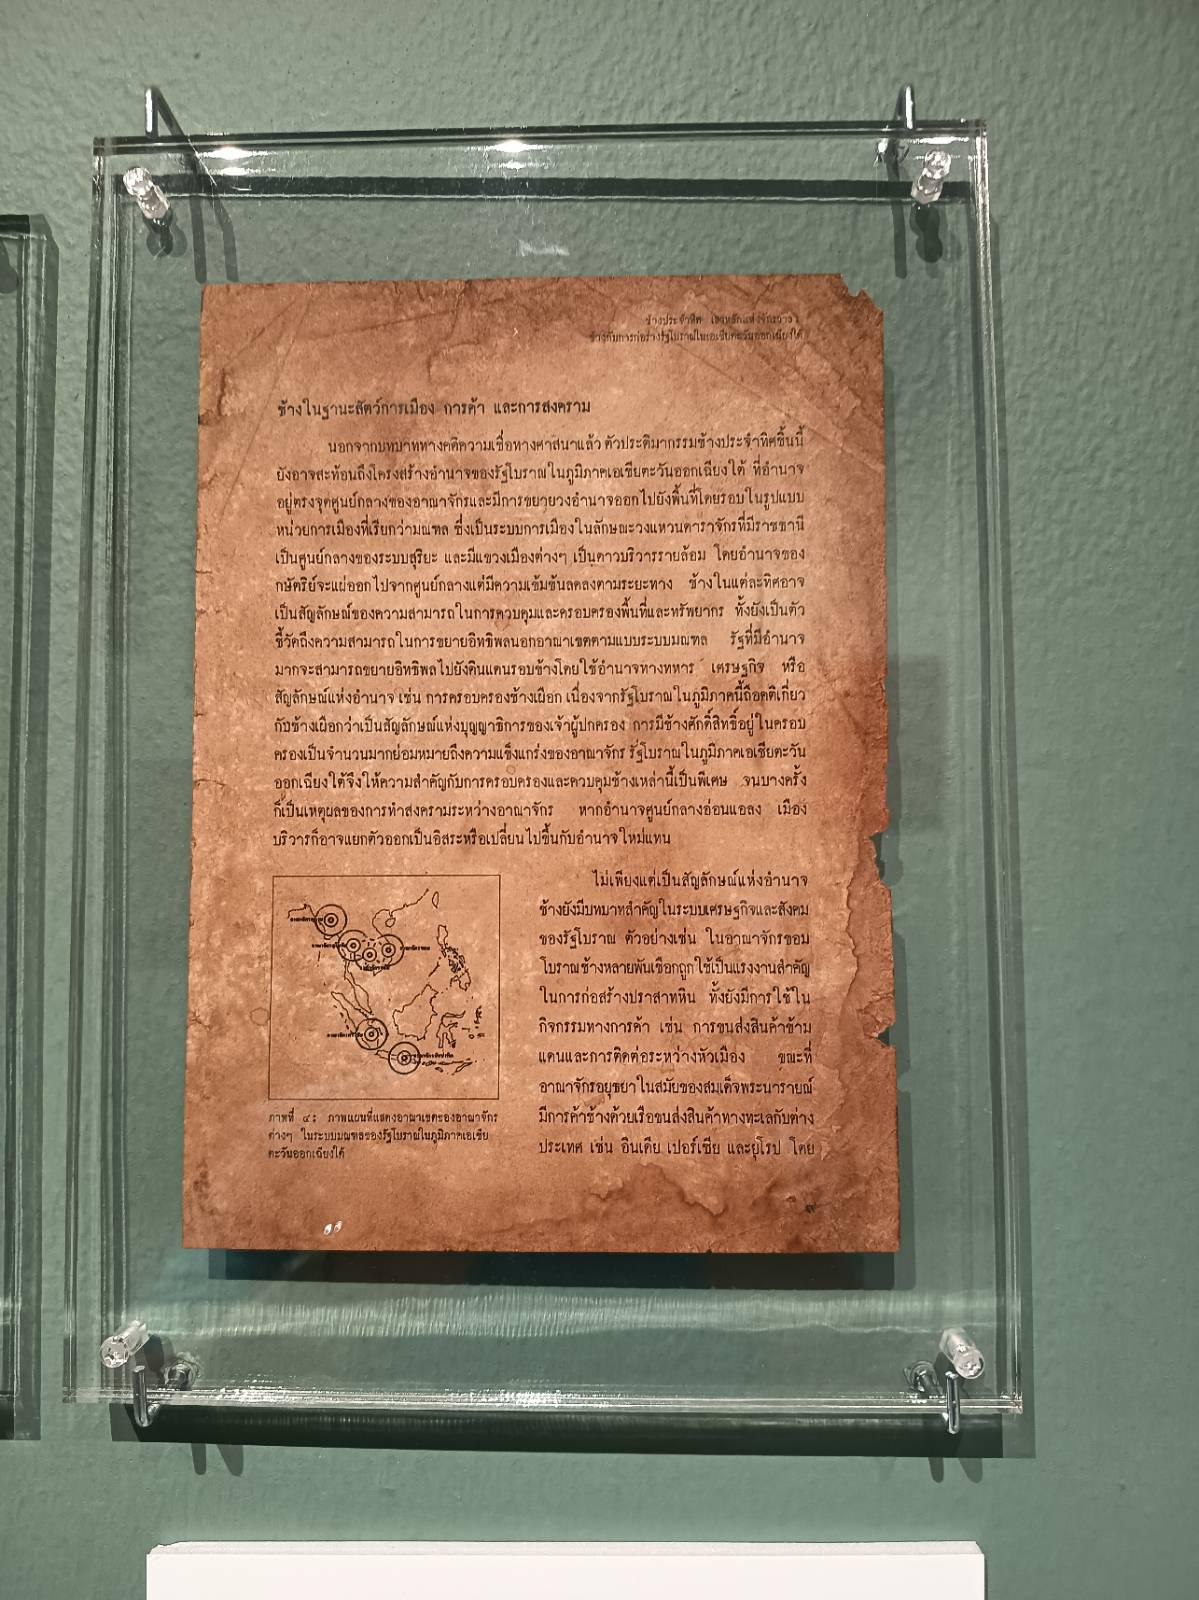 ช้างประจำทิศ เสาหลักแห่งจักรวาล :
ช้างกับการก่อร่างรัฐโบราณในเอเชียตะวันออกเฉียงใต้
ช้างในฐานะสัตว์การเมือง การค้า และการสงคราม
นอกจากบทบาททางคติความเชื่อทางศาสนาแล้ว ตัวประติมากรรมช้างประจำทิศชิ้นนี้
ยังอาจสะท้อนถึงโครงสร้างอำนาจของรัฐโบราณในภูมิภาคเอเชียตะวันออกเฉียงใต้ ที่อำนาจ
อยู่ตรงจุดศูนย์กลางของอาณาจักรและมีการขยายวงอำนาจออกไปยังพื้นที่โดยรอบในรูปแบบ
หน่วยการเมืองที่เรียกว่ามณฑล ซึ่งเป็นระบบการเมืองในลักษณะวงแหวนดาราจักรที่มีราชธานี
เป็นศูนย์กลางของระบบสุริยะ และมีแขวงเมืองต่างๆ เป็นดาวบริวารรายล้อม โดยอำนาจของ
กษัตริย์จะแผ่ออกไปจากศูนย์กลางแต่มีความเข้มข้นลดลงตามระยะทาง ช้างในแต่ละทิศอาจ
เป็นสัญลักษณ์ของความสามารถในการควบคุมและครอบครองพื้นที่และทรัพยากร ทั้งยังเป็นตัว
ชี้วัดถึงความสามารถในการขยายอิทธิพลนอกอาณาเขตตามแบบระบบมณฑล รัฐที่มีอำนาจ
มากจะสามารถขยายอิทธิพลไปยังดินแดนรอบข้างโดยใช้อำนาจทางทหาร เศรษฐกิจ หรือ
สัญลักษณ์แห่งอำนาจ เช่น การครอบครองช้างเผือก เนื่องจากรัฐโบราณในภูมิภาคนี้ถือคติเกี่ยว
กับช้างเผือกว่าเป็นสัญลักษณ์แห่งบุญญาธิการของเจ้าผู้ปกครอง การมีช้างศักดิ์สิทธิ์อยู่ในครอบ
ครองเป็นจำนวนมากย่อมหมายถึงความแข็งแกร่งของอาณาจักร รัฐโบราณในภูมิภาคเอเชียตะวัน
ออกเฉียงใต้จึงให้ความสำคัญกับการครอบครองและควบคุมช้างเหล่านี้เป็นพิเศษ จนบางครั้ง
ก็เป็นเหตุผลของการทำสงครามระหว่างอาณาจักร หากอำนาจศูนย์กลางอ่อนแอลง เมือง
บริวารก็อาจแยกตัวออกเป็นอิสระหรือเปลี่ยนไปขึ้นกับอำนาจใหม่แทน
ไม่เพียงแต่เป็นสัญลักษณ์แห่งอำนาจ
ช้างยังมีบทบาทสำคัญในระบบเศรษฐกิจและสังคม
ของรัฐโบราณ ตัวอย่างเช่น ในอาณาจักรขอม
โบราณช้างหลายพันเชือกถูกใช้เป็นแรงงานสำคัญ
ในการก่อสร้างปราสาทหิน ทั้งยังมีการใช้ใน
กิจกรรมทางการค้า เช่น การขนส่งสินค้าข้าม
แดนและการติดต่อระหว่างหัวเมือง ขณะที่
อาณาจักรอยุธยาในสมัยของสมเด็จพระนารายณ์
มีการค้าช้างด้วยเรือขนส่งสินค้าทางทะเลกับต่าง
ประเทศ เช่น อินเดีย เปอร์เซีย และยุโรป โดย
ภาพที่ ๔ : ภาพแผนที่แสดงอาณาเขตของอาณาจักร
ต่างๆ ในระบบมณฑลของรัฐโบราณในภูมิภาคเอเชีย
ตะวันออกเฉียงใต้